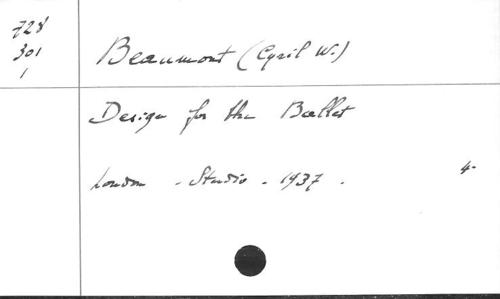 728
301
1
Beaumont (Cyril W.)
Design for the Ballet
London - Studio - 1937.
4-